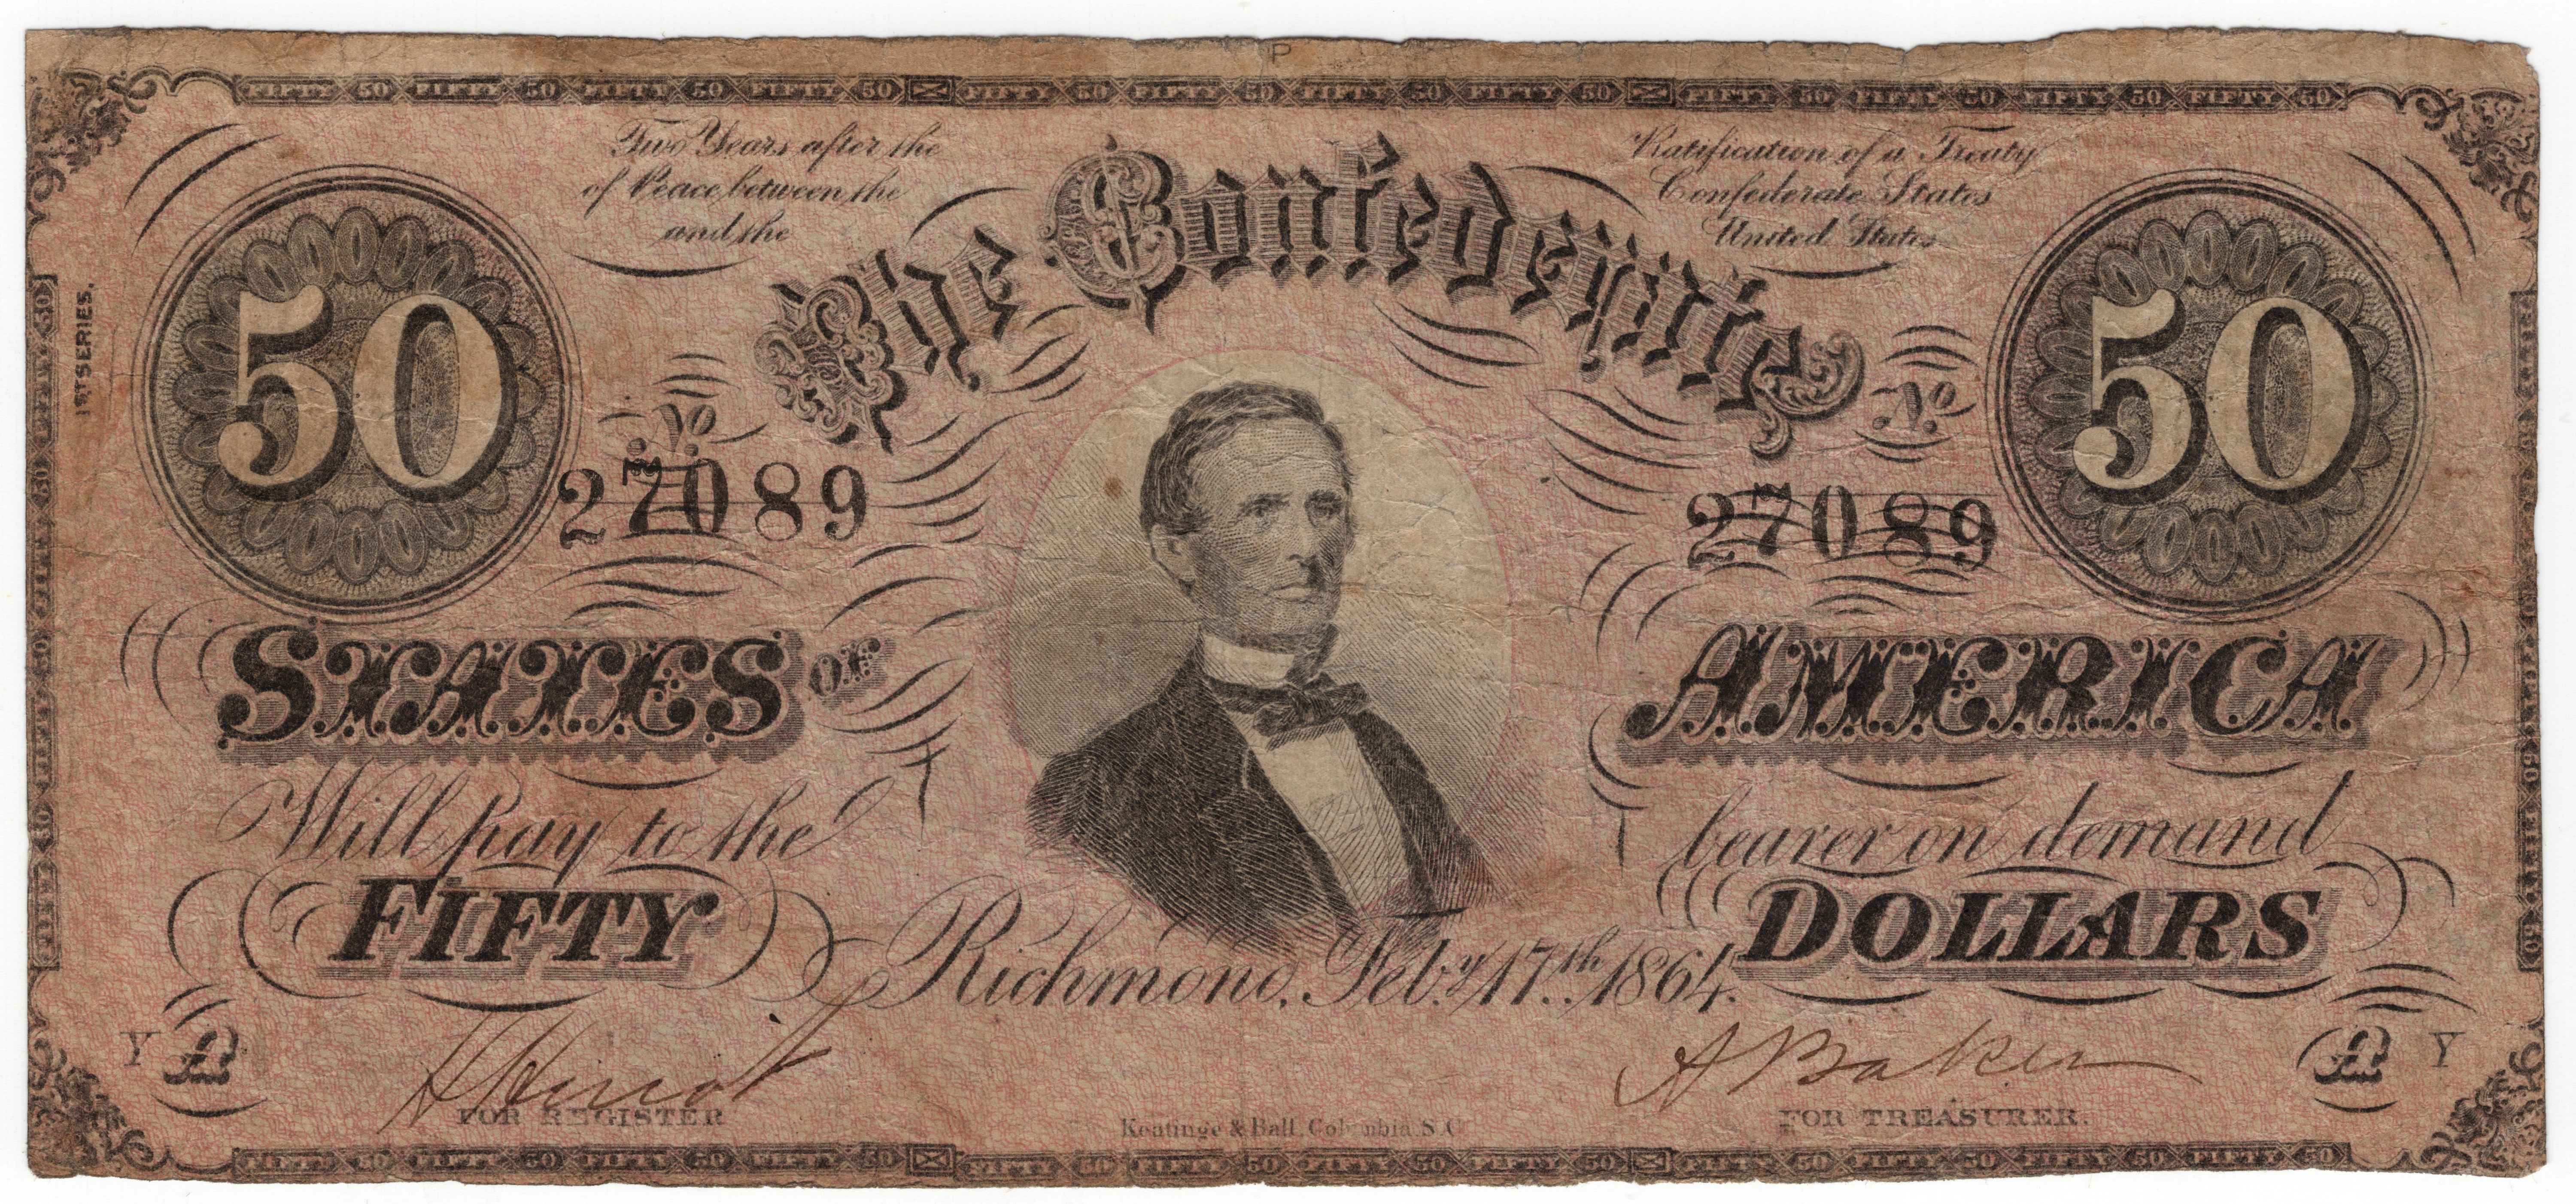 P
FIFTY 50 FIFTY 50 FIFTY 50 FIFTY 50 FIFTY 50 FIFTY 50 FIFTY 50 FIFTY 50 FIFTY 50 FIFTY 50 FIFTY 50 FIFTY 50
Two Years after the Ratification of a Treaty
of Peace between the Confederate States
and the United States
The Confederate
1ST SERIES.
50 50
No No
27089 27089
STATES OF AMERICA
Will pay to the bearer on demand
FIFTY DOLLARS
Richmond, Feby. 17th. 1864.
Y A A Y
A Baker
FOR REGISTER FOR TREASURER.
Keatinge & Ball, Columbia S.C.
FIFTY 50 FIFTY 50 FIFTY 50 FIFTY 50 FIFTY 50 FIFTY 50 FIFTY 50 FIFTY 50 FIFTY 50 FIFTY 50 FIFTY 50 FIFTY 50